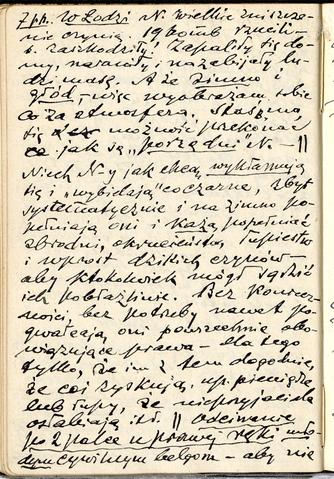 7 ph. W Łodzi N. wielkie zniszcze-
nie czynią. 19 bomb rzucili -
b. zaszkodziły! Zapaliły się do-
my, naraniły i nazabijały lu-
dzi masę. A że zimno i
głód, więc wyobrażam sobie
co za atmosfera. Stąd ma
się też możność przekonać
co jak są „porządni” N. — ||
Niech N-y jak chcą, wykłamują
się i „wybielają” co czarne, zbyt
systematycznie i na zimno po-
pełniają oni i każą popełniać
zbrodni, okrucieństw, łupiestw
i wprost dzikich czynów -
aby ktokolwiek mógł sądzić
ich pobłażliwie. Bez koniecz-
ności, bez potrzeby nawet po-
gwałcają oni powszechnie obo-
wiązujące prawa - dla tego
tylko, że im z tem dogodnie,
że coś zyskują, np. pieniądze
lub łupy, że nieprzyjaciela
osłabiają itd. || Odcinanie
po 2 palce u prawej ręki mło-
dym cywilnym belgom - aby nie